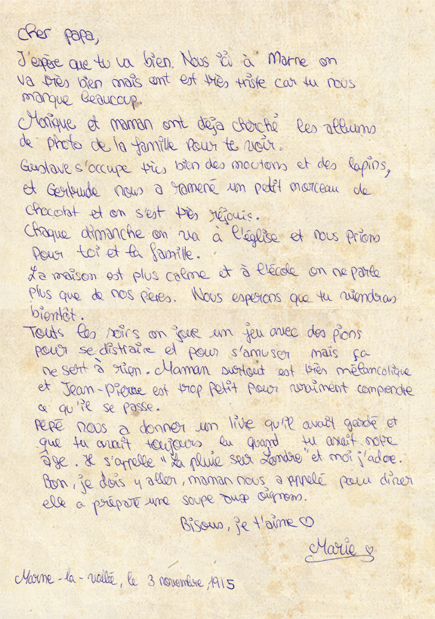 Cher papa,
J'espère que tu va bien. Nous ici à Marne on
va très bien mais ont est très triste car tu nous
manque beaucoup.
Monique et maman ont déja cherché les albums
de photo de la famille pour te voir.
Gustave s'occupe très bien des moutons et des lapins,
et Gertrude nous a ramené un petit morceau de
chocolat et on s'est très réjouis.
Chaque dimanche on va à l'église et nous prions
pour toi et la famille.
La maison est plus calme et à l'école on ne parle
plus que de nos pères. Nous esperons que tu viendras
bientôt.
Touts les soirs on joue un jeu avec des pions
pour se distraire et pour s'amuser mais ça
ne sert à rien. Maman surtout est très mélancolique
et Jean-Pierre est trop petit pour vraiment comprendre
ce qu'il se passe.
Pépé nous a donner un livre qu'il avait gardé et
que tu avait toujours lu quand tu avait notre
âge. Il s'appelle "La pluie sur Londre" et moi j'adore.
Bon, je dois y aller, maman nous a appelé pour diner
elle a préparé une soupe aux oignons.
Bisous, je t'aime ♡
Marie ♡
Marne-la-vallée, le 3 novembre, 1915